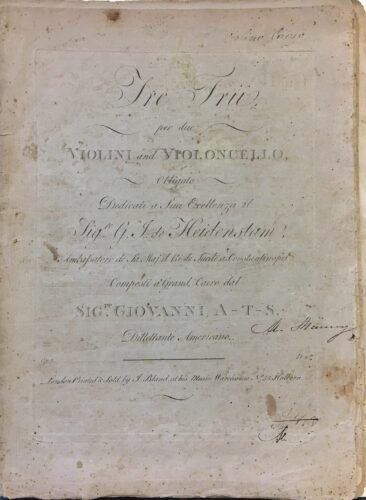 Violino Primo
Tre Trii,
per due
VIOLINI and VIOLONCELLO,
Obligato
Dedicati a Sua Excellenza il
Sigr. G. J. de Heidenstam,
Ambasciatore de Sa Maj. il Re de Suede a Constantinople
Composti a Grand Cairo dal
SIGR. GIOVANNI, A-T-S,
Dillettante Americano.
London Printed & Sold by J. Bland at his Music Warehouse No. 45 Holborn